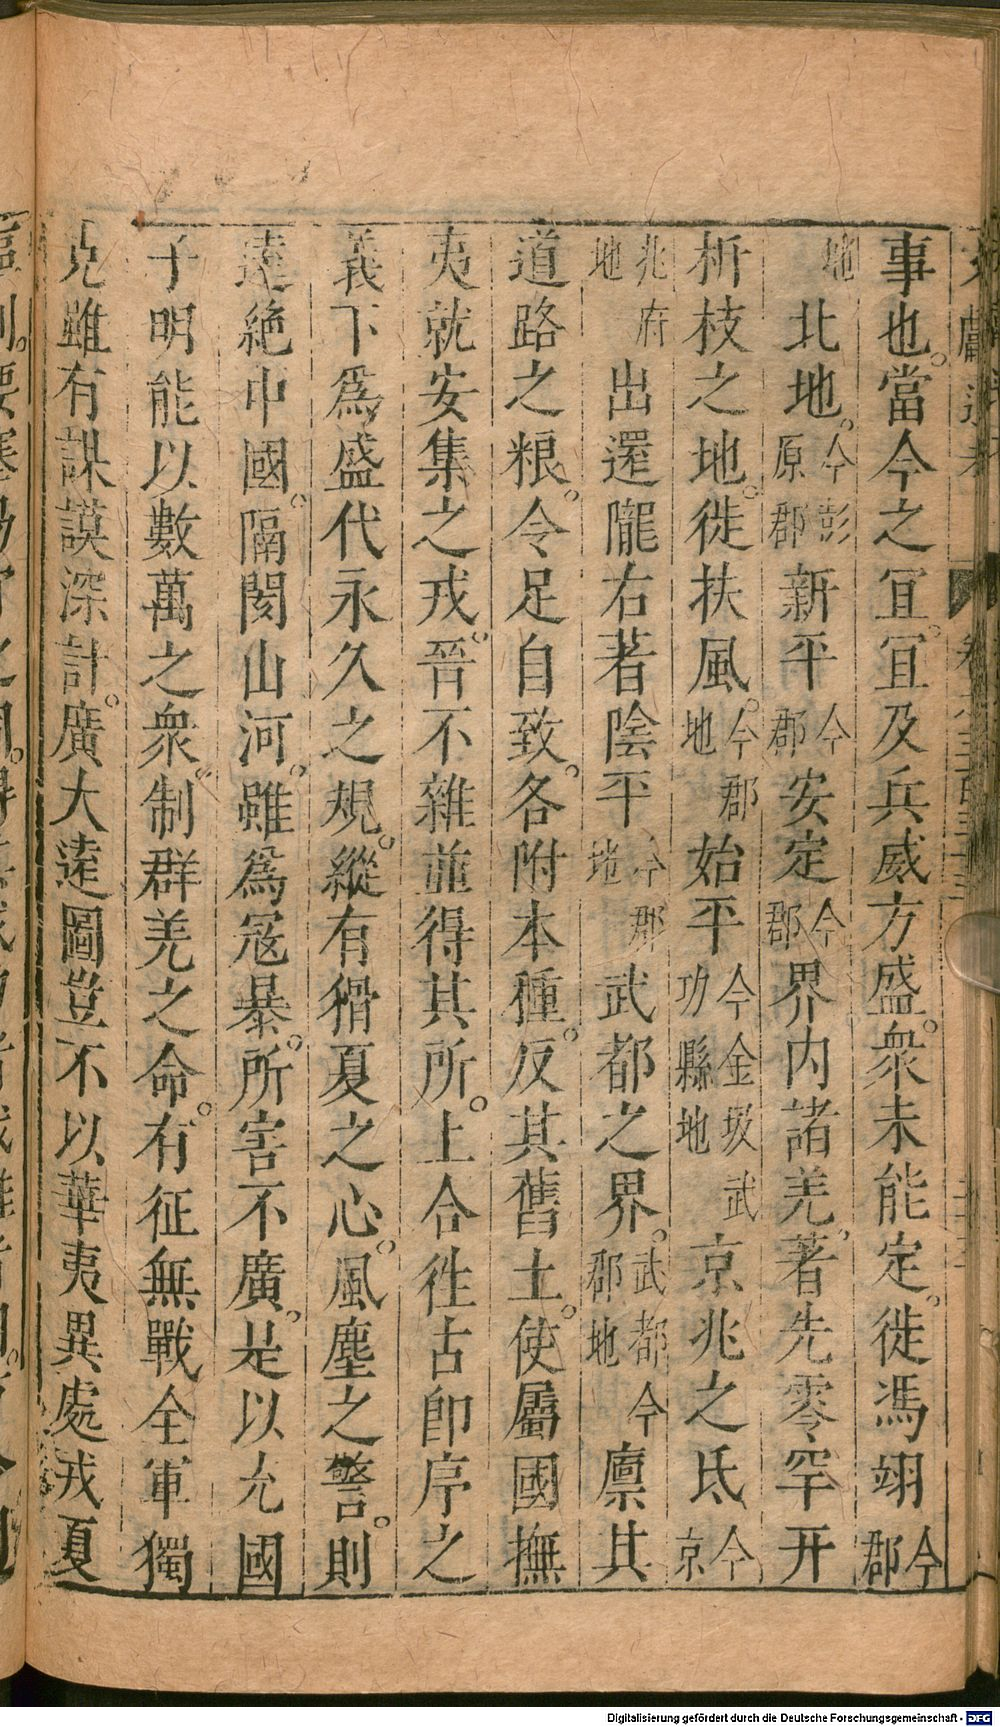 事也。當今之冝。冝及兵威方盛。衆未能定。徙馮翊今郡
地北地。今彭原郡新平今郡安定今郡界内諸羌。著先零罕幵
析枝之地。徙扶風。今郡地始平今金坂武功縣地京兆之氐今京
兆府地出還隴右著陰平今郡地武都之界。武都今郡地廪其
道路之粮。令足自致。各附本種。反其舊土。使屬國撫
夷就安集之戎。晉不雜並得其所。上合徃古即序之
義下爲盛代永久之規。縱有猾夏之心。風塵之警。則
逺絶中國。隔閡山河。雖爲寇暴。所害不廣。是以充國
子明能以數萬之衆。制群羌之命。有征無戰全軍獨
克雖有謀謨深計。廣大逺圖豈不以華夷異處戎夏
Digitalisierung gefördert durch die Deutsche Forschungsgemeinschaft - DFG